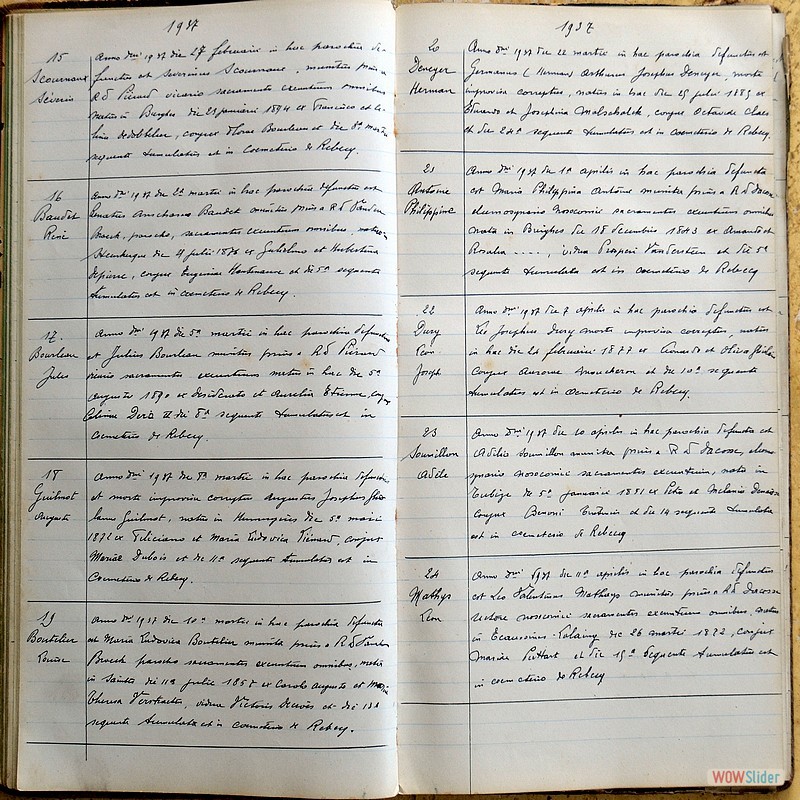 1937
15
Scournaux
Séverin
Anno dni 1937 die 27 februarii in hac parochia de-
functus et Severinus Scournaux, munitus prius a
Rd Piérard vicario sacramentis exeuntium omnibus
natus in Bierghes die 21 januarii 1894 ex Francisco et
conjux Flora Bourleau et die
sequente tumulatus est in Coemeterio de Rebecq.
16
Baudet
René
Anno dni 1937 die 2a martii in hac parochia defunctus est
Baudet munitus prius a Rd Vanden
Broeck, parocho, sacramentis exeuntium omnibus, natus
Steenkerque die 4 julii 1876 ex Guilelmo et Hubertina
Depierre, conjux Eugenia Hautenauve et die 5a sequente
tumulatus est in coemeterio de Rebecq.
17
Bourleau
Jules
Anno dni 1937 die 5a martii in hac parochia defunctus
est Julius Bourleau munitus prius a Rd Piérard
vicario sacramentis exeuntium natus in hac die 5a
augusti 1890 ex Desiderato et Aurelia Etienne,
die 8a sequente tumulatus est in
Coemeterio de Rebecq.
18
Guilmot
Auguste
Anno dni 1937 die 8a martii in hac parochia defunctus
est morte improvisa correptus Augustus Josephus Ghis
lanus Guilmot, natus in Hennuyères die 5a maii
1872 ex Feliciano et Maria Ludovica Piérard, conjux
Mariae Dubois et die 11a sequente tumulatus est in
Coemeterio de Rebecq.
19
Boutelier
Louise
Anno dni 1937 die 10a martii in hac parochia defuncta
est Maria Ludovica Boutelier munita prius a Rd Vanden
Broeck parocho sacramentis exeuntium omnibus, nata
in Saintes die 11a julii 1857 ex Carolo Augusto et Maria
Theresa, vidua Victoris et die 13a
sequente tumulata est in coemeterio de Rebecq.
1937
20
Deneyer
Herman
Anno dni 1937 die 22 martii in hac parochia defunctus est
Germanus (Herman) Arthurus Josephus Deneyer, morte
improvisa correptus, natus in hac die 25 julii 1885 ex
Eduardo et Josephina Malschalck, conjux Octavie Claes
et die 24a sequente tumulatus est in coemeterio de Rebecq.
21
Antoine
Philippine
Anno dni 1937 die 1a aprilis in hac parochia defuncta
est Maria Philippina Antoine munita prius a Rd Dacosse
elemosynario nosocomii sacramentis exeuntium omnibus
nata in Bierghes die 18 decembris 1843 ex Armando et
Rosalia ...., vidua Prosperi Vandersteen et die 5a
sequente tumulata est in coemeterio de Rebecq
22
Dury
Léon
Joseph
Anno dni 1937 die 7 aprilis in hac parochia defunctus est
Leo Josephus Dury morte improvisa correptus, natus
in hac die 21 februarii 1877 ex Amando et Oliva
conjux Aurorae Moucheron et die 10a sequente
tumulatus est in Coemeterio de Rebecq.
23
Sourillon
Adèle
Anno dni 1937 die 10 aprilis in hac parochia defuncta est
Adelia Sourillon munita prius a Rd Dacosse, elemo
synario nosocomii sacramentis exeuntium, nata in
Tubize die 5a januarii 1851 ex Petro et Melania
conjux Benoni et die 14 sequente tumulata
est in coemeterio de Rebecq
24
Mathys
Léon
Anno dni 1937 die 11a aprilis in hac parochia defunctus
est Leo Valentinus Mathys munitus prius a Rd Dacosse
rectore nosocomii sacramentis exeuntium omnibus, natus
in Ecaussines-Lalaing die 26 martii 1872, conjux
Mariae et die 15a sequente tumulatus est
in coemeterio de Rebecq
WOWSlider